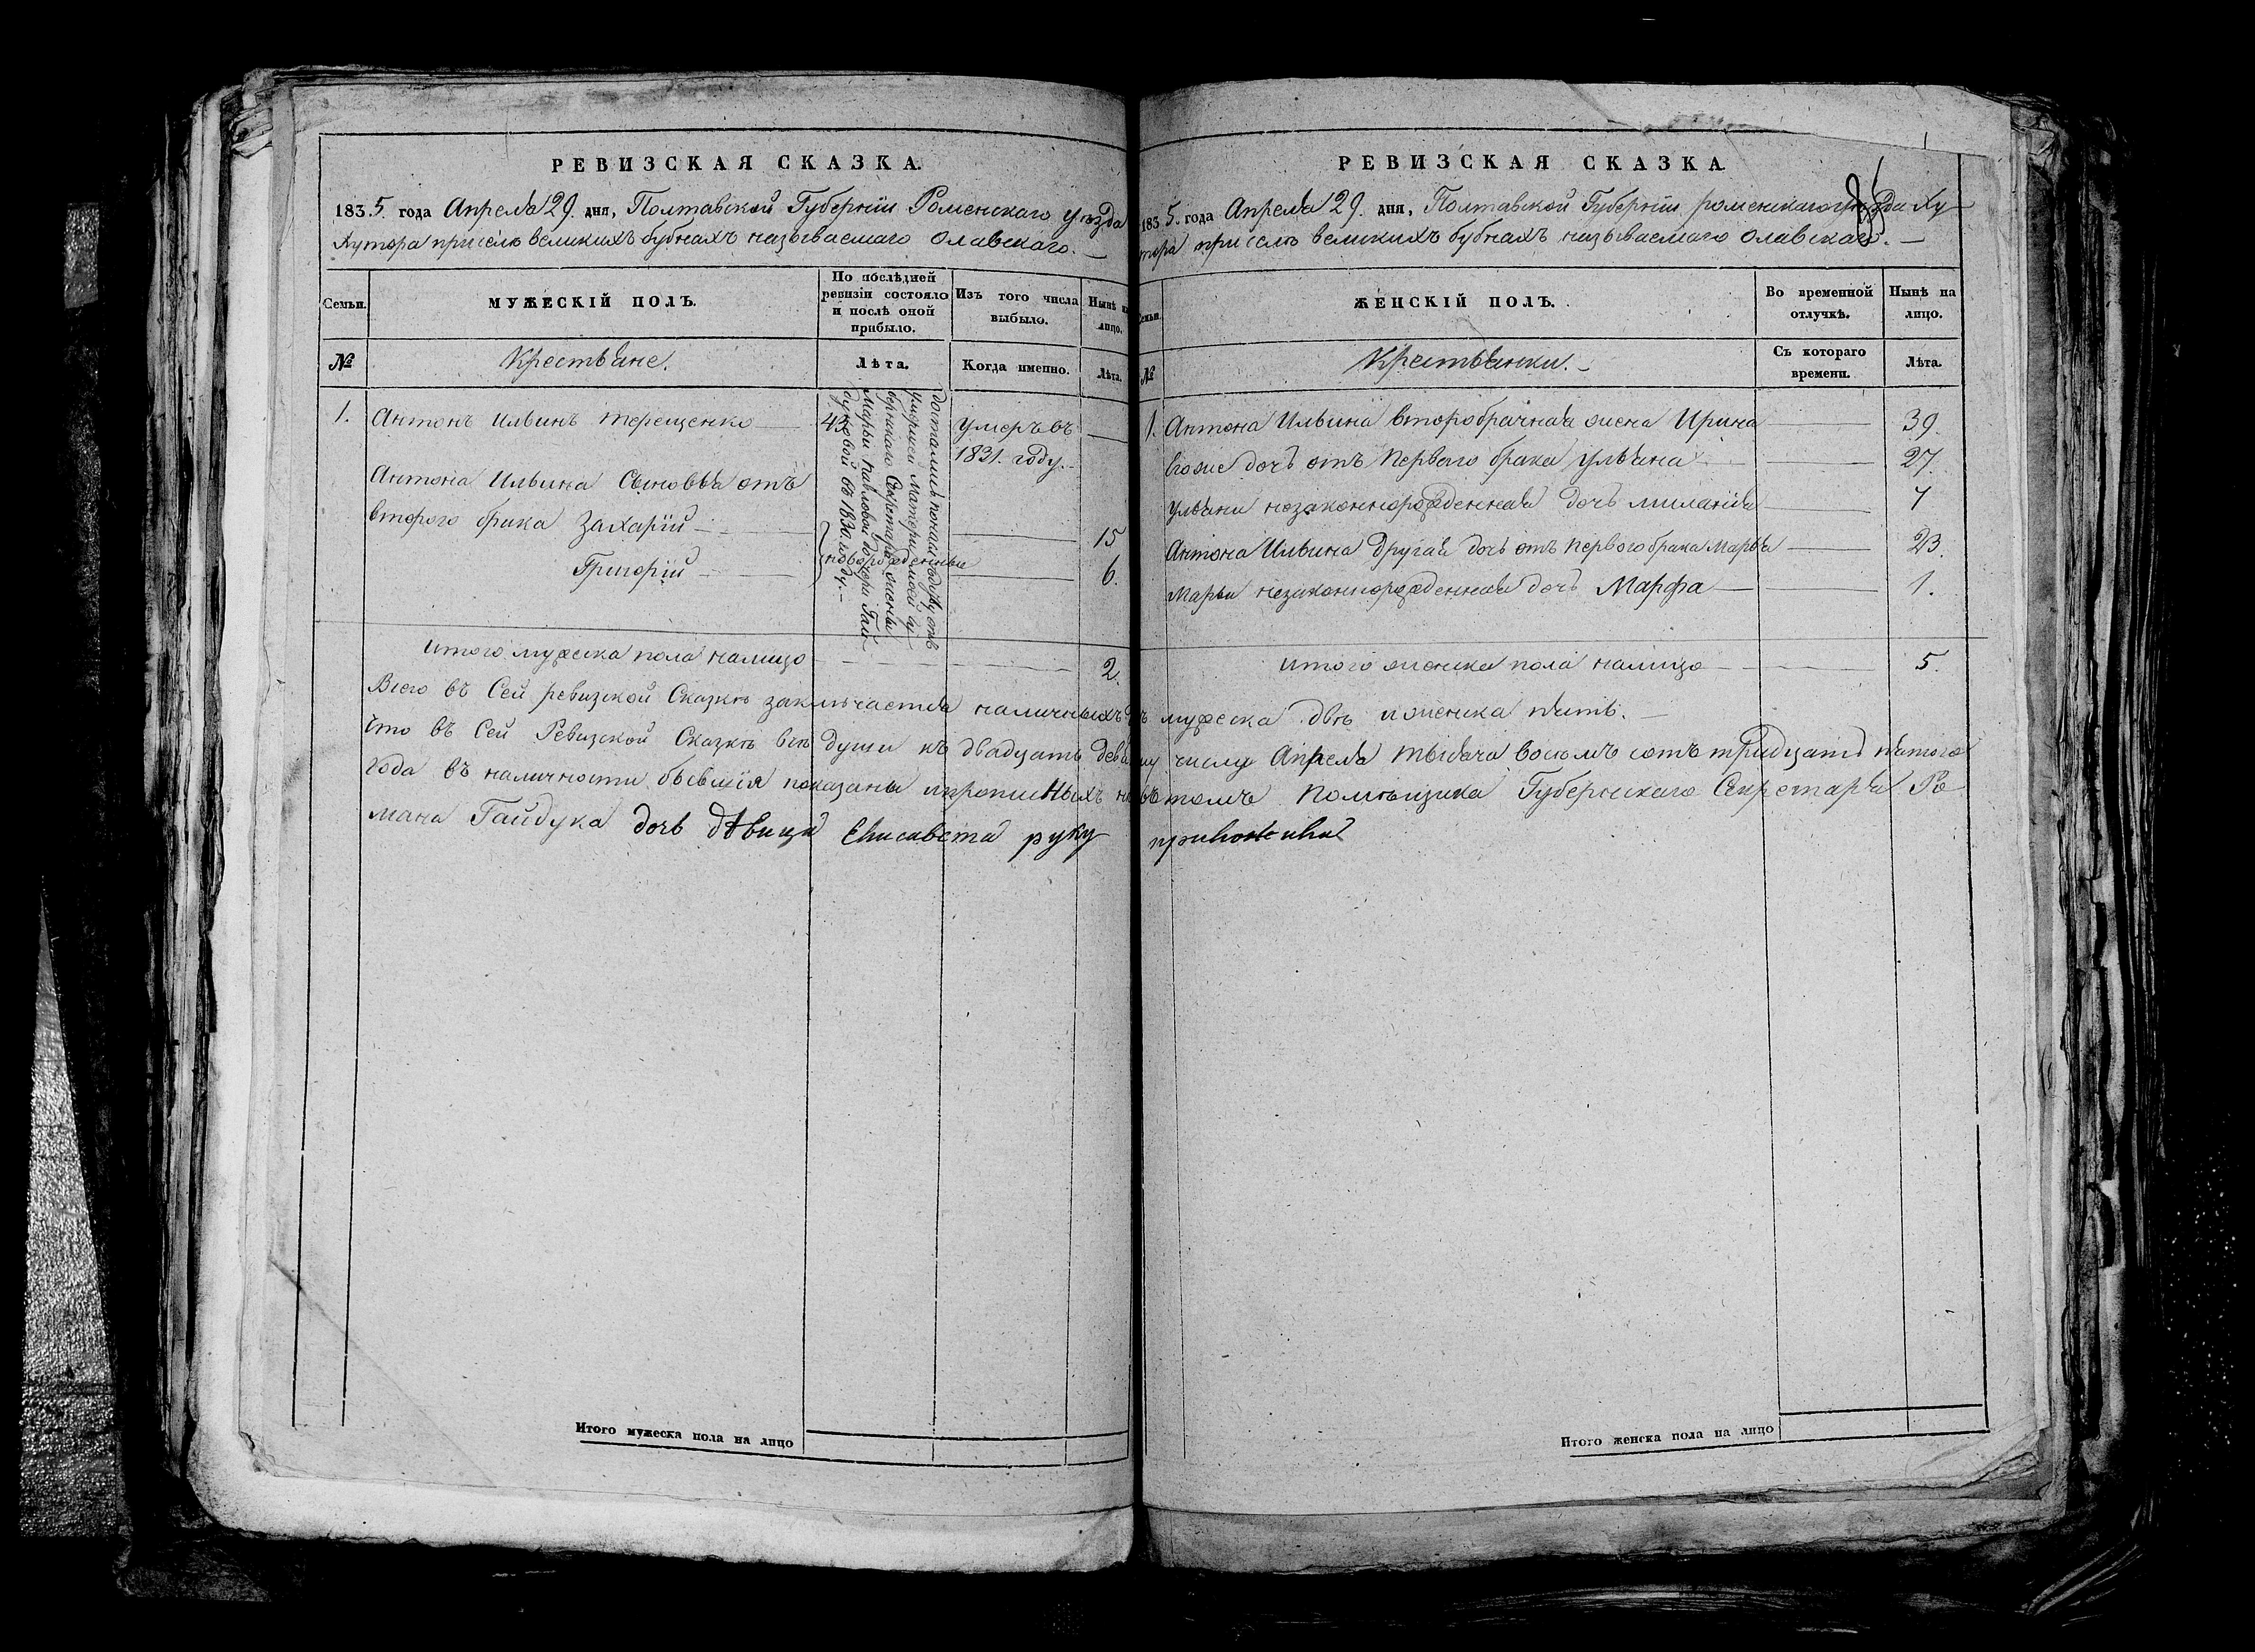 РЕВИЗСКАЯ СКАЗКА.
1835. года Апреля 29. дня, Полтавской Губерніи Роменскаго уезда
Хутора приселѣ великихъ бубнахъ называемаго Олавскаго.
Семьи.
МУЖЕСКІЙ ПОЛЪ.
По послѣдней ревизіи состояло и послѣ оной прибыло.
Изъ того числа выбыло.
Нынѣ на лицо.
№
Крестьяне.
Лѣта.
Когда именно.
Лѣта.
1. Антонъ Ильинъ Терещенко 43. умеръ въ
1831. году.
Антона Ильина Сыновья отъ
второго брака Захарій 15
Григорій новорожденные 6.
достались поналѣдству отъ
умершей матери моей гу
бернскаго Секретаря жены
Марьи Павловой дочери Гай
дуковой въ 1830 году.
итого мужеска пола налицо 2.
РЕВИЗСКАЯ СКАЗКА
1835. года Апреля 29. дня, Полтавской Губерніи роменскаго уезда Ху
тора приселѣ великихъ бубнахъ называемаго Олавскаго.
Семьи.
ЖЕНСКІЙ ПОЛЪ.
Во временной отлучкѣ.
Нынѣ на лицо.
№
Крестьянки.
Съ котораго времени.
Лѣта.
1. Антона Ильина второбрачная жена Ирина 39.
Егоже дочь отъ первого брака Ульяна 27.
Ульяни незаконнорожденная дочь миланія 7
Антона Ильина другая дочь отъ первого брака Марья 23.
Марьи незаконнорожденная дочь Марфа 1.
итого женска пола налицо 5.
Всего въ Сей ревизской Сказкѣ заключается наличныхъ мужеска двѣ и женска пять.
что въ Сей Ревизской Сказкѣ всѣ души къ двадцать девятому числу Апреля тысяча восемъ сотъ тридцать пятого
года въ наличности бывшія показаны и прописныхъ нѣтъ въ томъ помѣщика Губернскаго Секретаря Ро
мана Гайдука дочь дѣвица Елисавета руку приложила
Итого мужеска пола на лицо
Итого женска пола на лицо